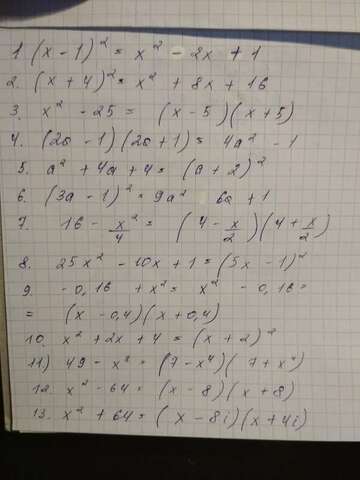 1 (x - 1)² = x² - 2x + 1
2. (x + 4)² = x² + 8x + 16
3. x² - 25 = (x - 5)(x + 5)
4. (2a - 1)(2a + 1) = 4a² - 1
5. a² + 4a + 4 = (a + 2)²
6. (3a - 1)² = 9a² 6a + 1
7. 16 - x²/4 = (4 - x/2)(4 + x/2)
8. 25x² - 10x + 1 = (5x - 1)²
9. -0,16 + x² = x² - 0,16 =
= (x - 0,4)(x + 0,4)
10. x² + 2x + 4 = (x + 2)²
11) 49 - x⁸ = (7 - x⁴)(7 + x⁴)
12. x² - 64 = (x - 8)(x + 8)
13. x² + 64 = (x - 8i)(x + 4i)